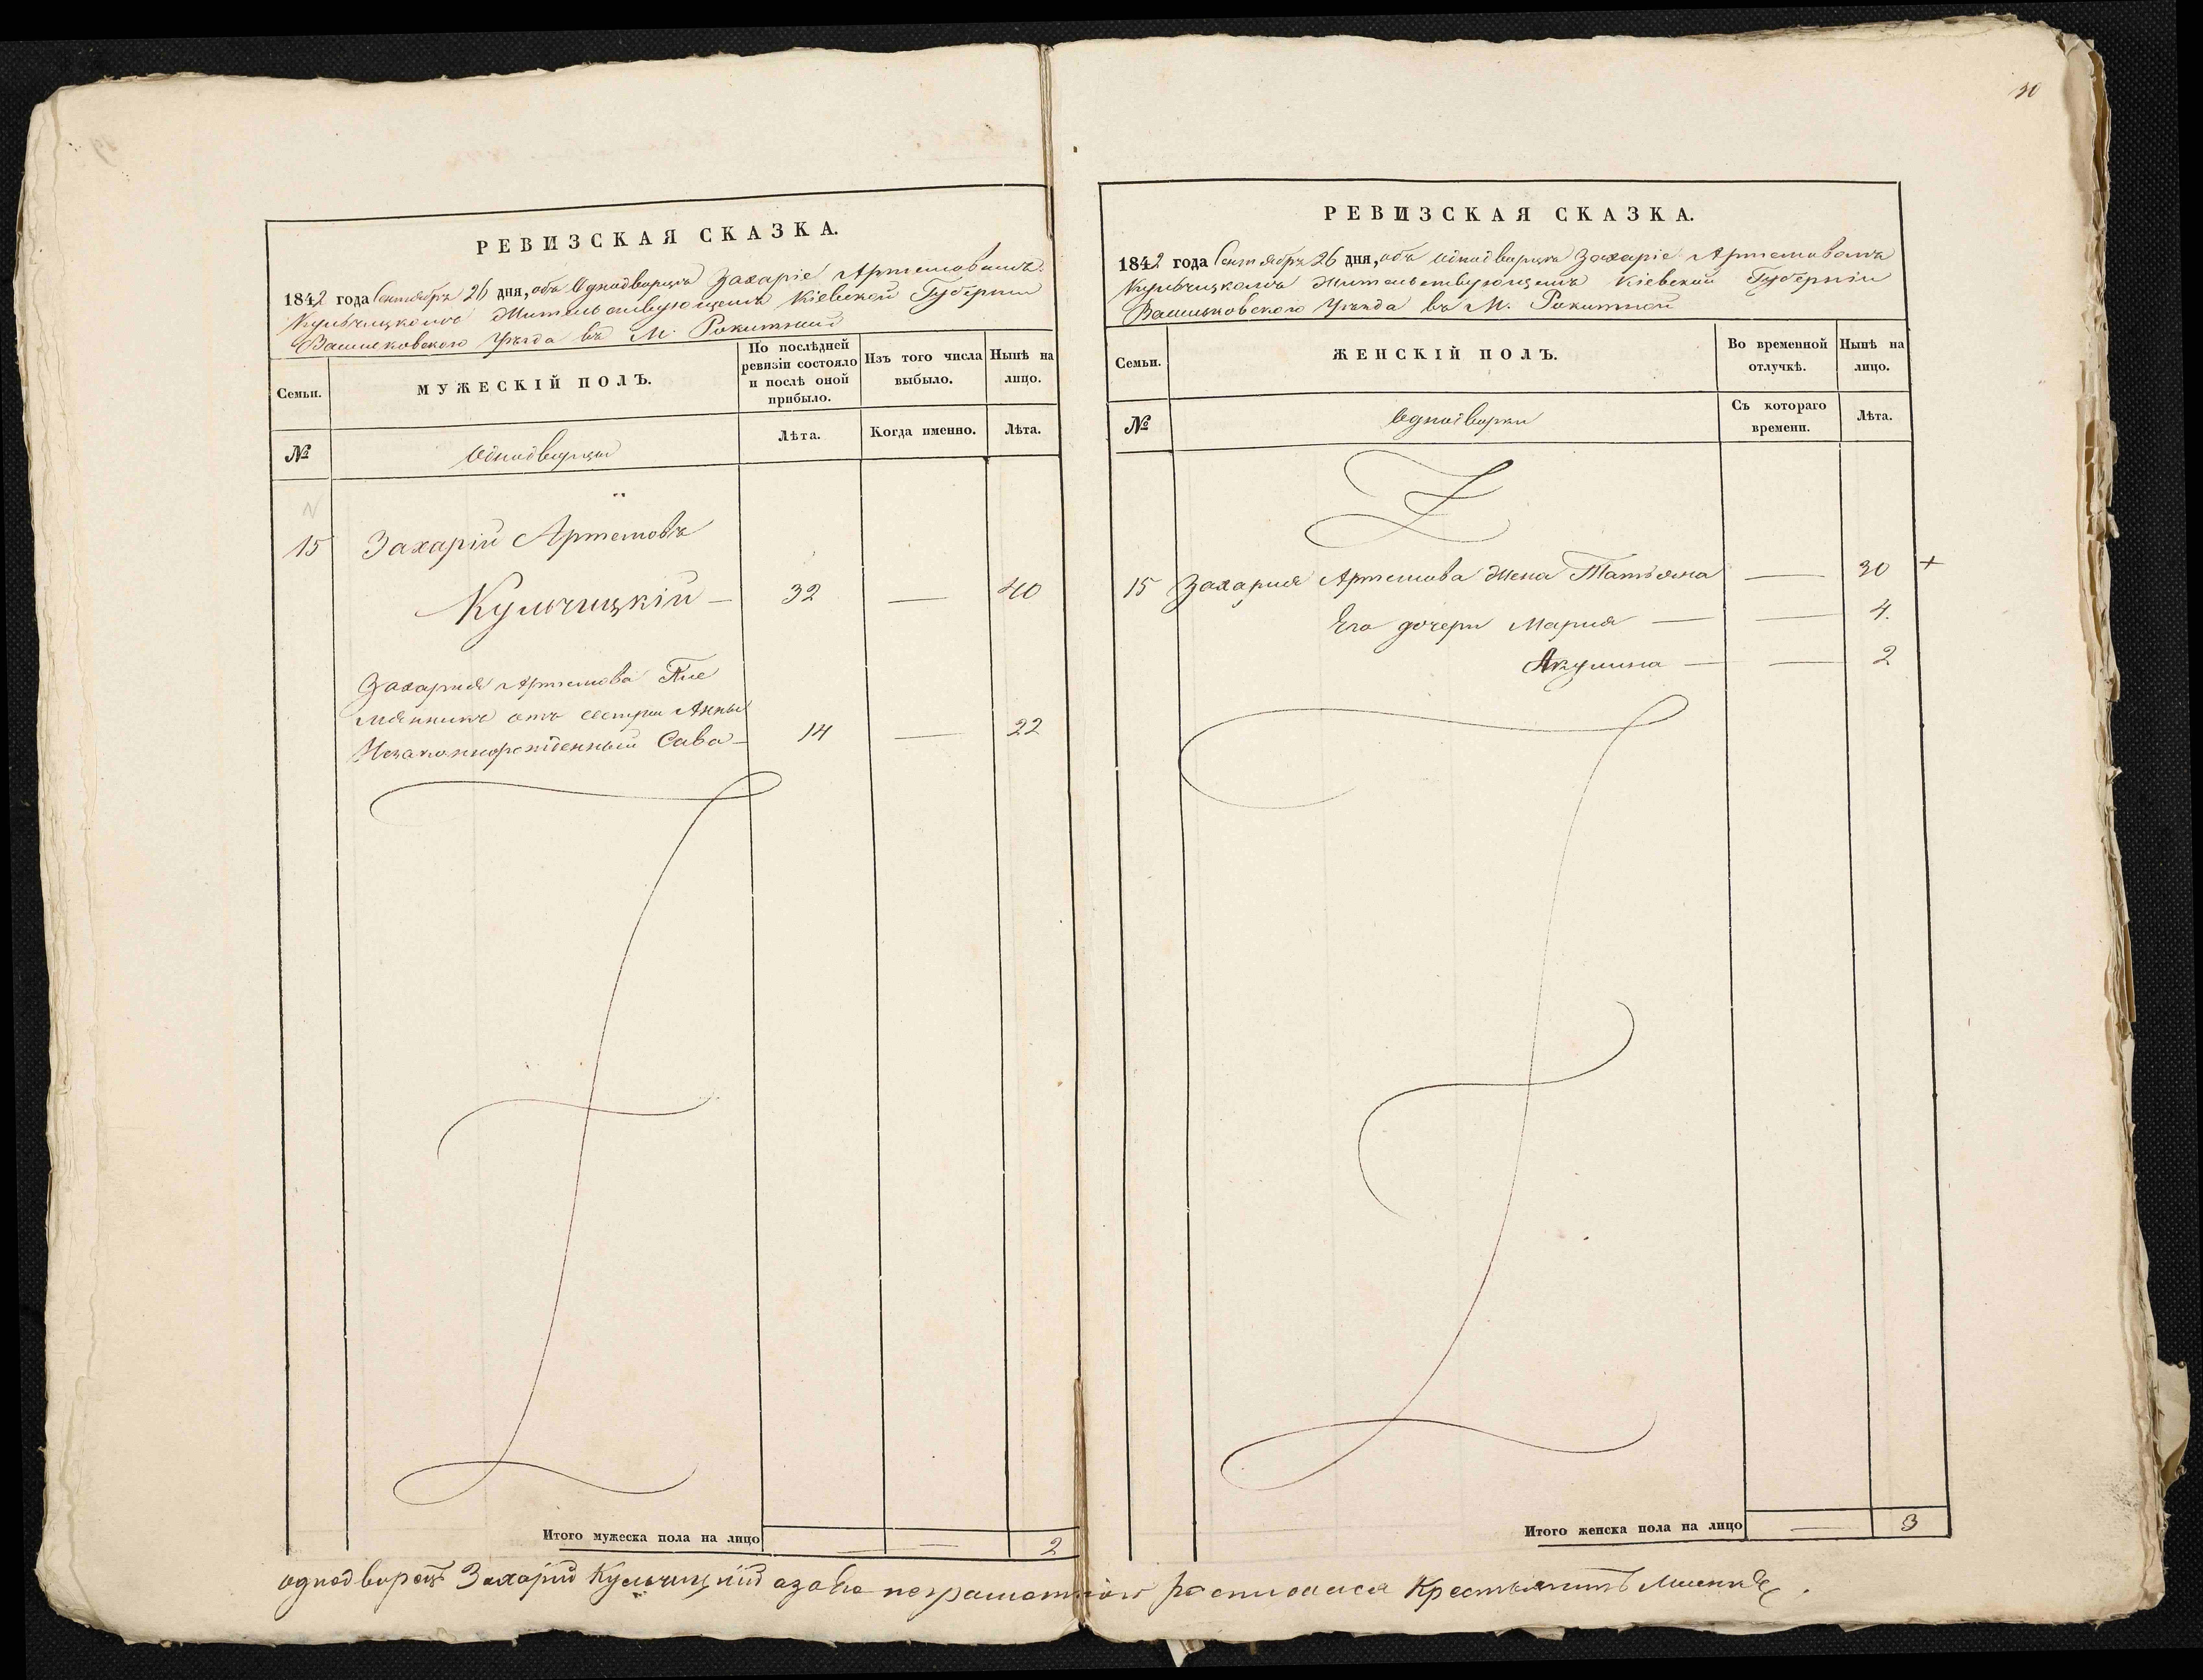 РЕВИЗСКАЯ СКАЗКА.
1842 года Сентября 26 дня, объ Однодворцѣ Захаріе Артемовомъ
Кульчицкомъ Жительствующемъ Кіевской Губерніи
Васильковскаго Уѣзда въ М. Рокитной
Семьи.
МУЖЕСКІЙ ПОЛЪ.
По послѣдней ревизіи состояло и послѣ оной прибыло.
Изъ того числа выбыло.
Нынѣ на лицо.
№
Однодворцы
Лѣта.
Когда именно.
Лѣта.
15 Захарій Артемовъ
Кульчицкій — 32 — 40
Захарія Артемова Пле
мянникъ отъ сестры Анны
Незаконнорожденный Сава — 14 — 22
Итого мужеска пола на лицо — — 2
30
РЕВИЗСКАЯ СКАЗКА.
1842 года Сентября 26 дня, объ Однодворцѣ Захаріе Артемовомъ
Кульчицкомъ Жительствующемъ Кіевской Губерніи
Васильковскаго Уѣзда въ М. Рокитной
Семьи.
ЖЕНСКІЙ ПОЛЪ.
Во временной отлучкѣ.
Нынѣ на лицо.
№
Однодворки
Съ котораго времени.
Лѣта.
15 Захарія Артемова Жена Татьяна — 30 +
Его дочери Мария — — 4.
Акулина — — 2
Итого женска пола на лицо — 3
однодворецъ Захарій Кульчицкій а за его неграмотной росписался Крестьянинъ